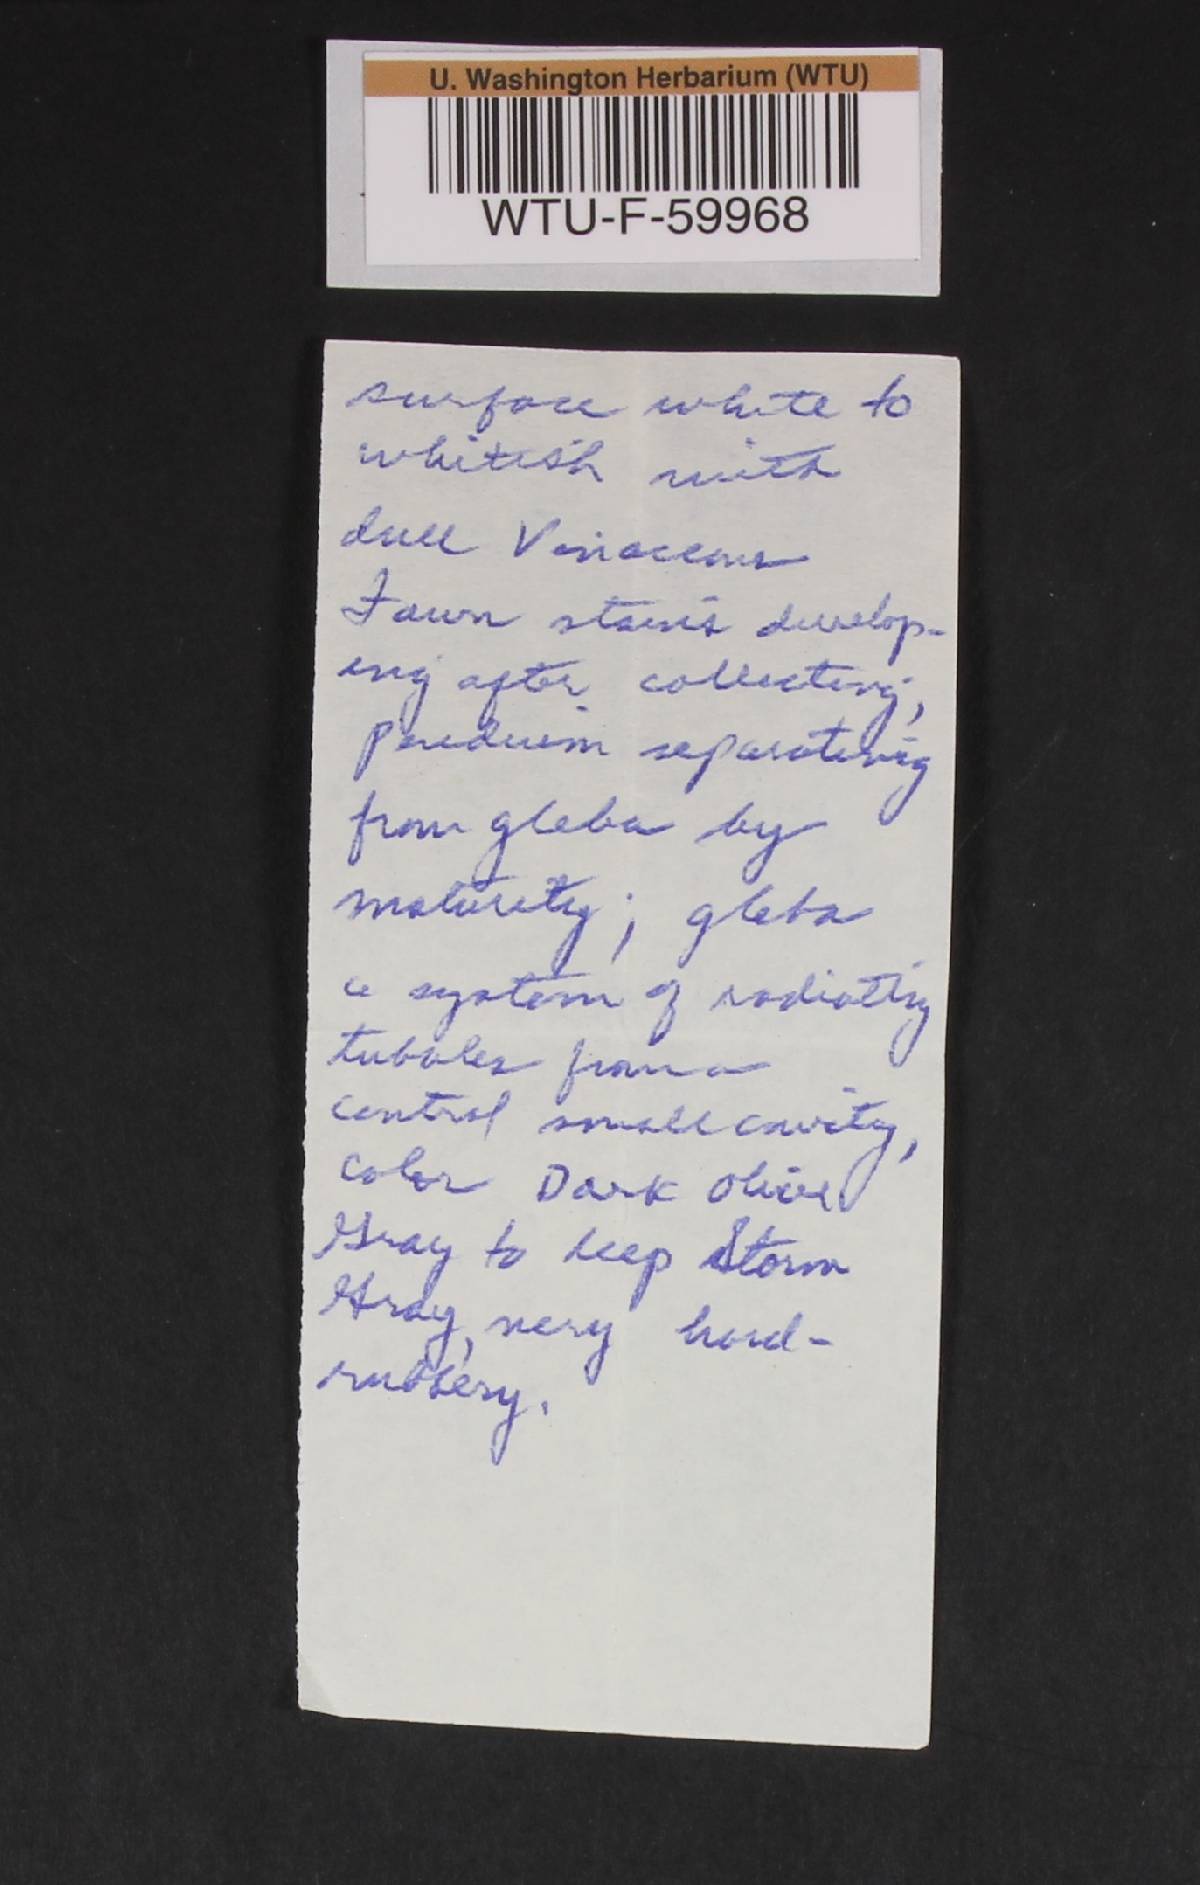 U. Washington Herbarium (WTU)
WTU-F-59968
surface white to
whitish with
dull Vinaceous
Fawn stains develop-
ing after collecting,
peridium separating
from gleba by
maturity; gleba
a system of radiating
tubules from a
central small cavity,
color Dark Olive
Gray to deep Storm
Gray, very hard-
rubbery.